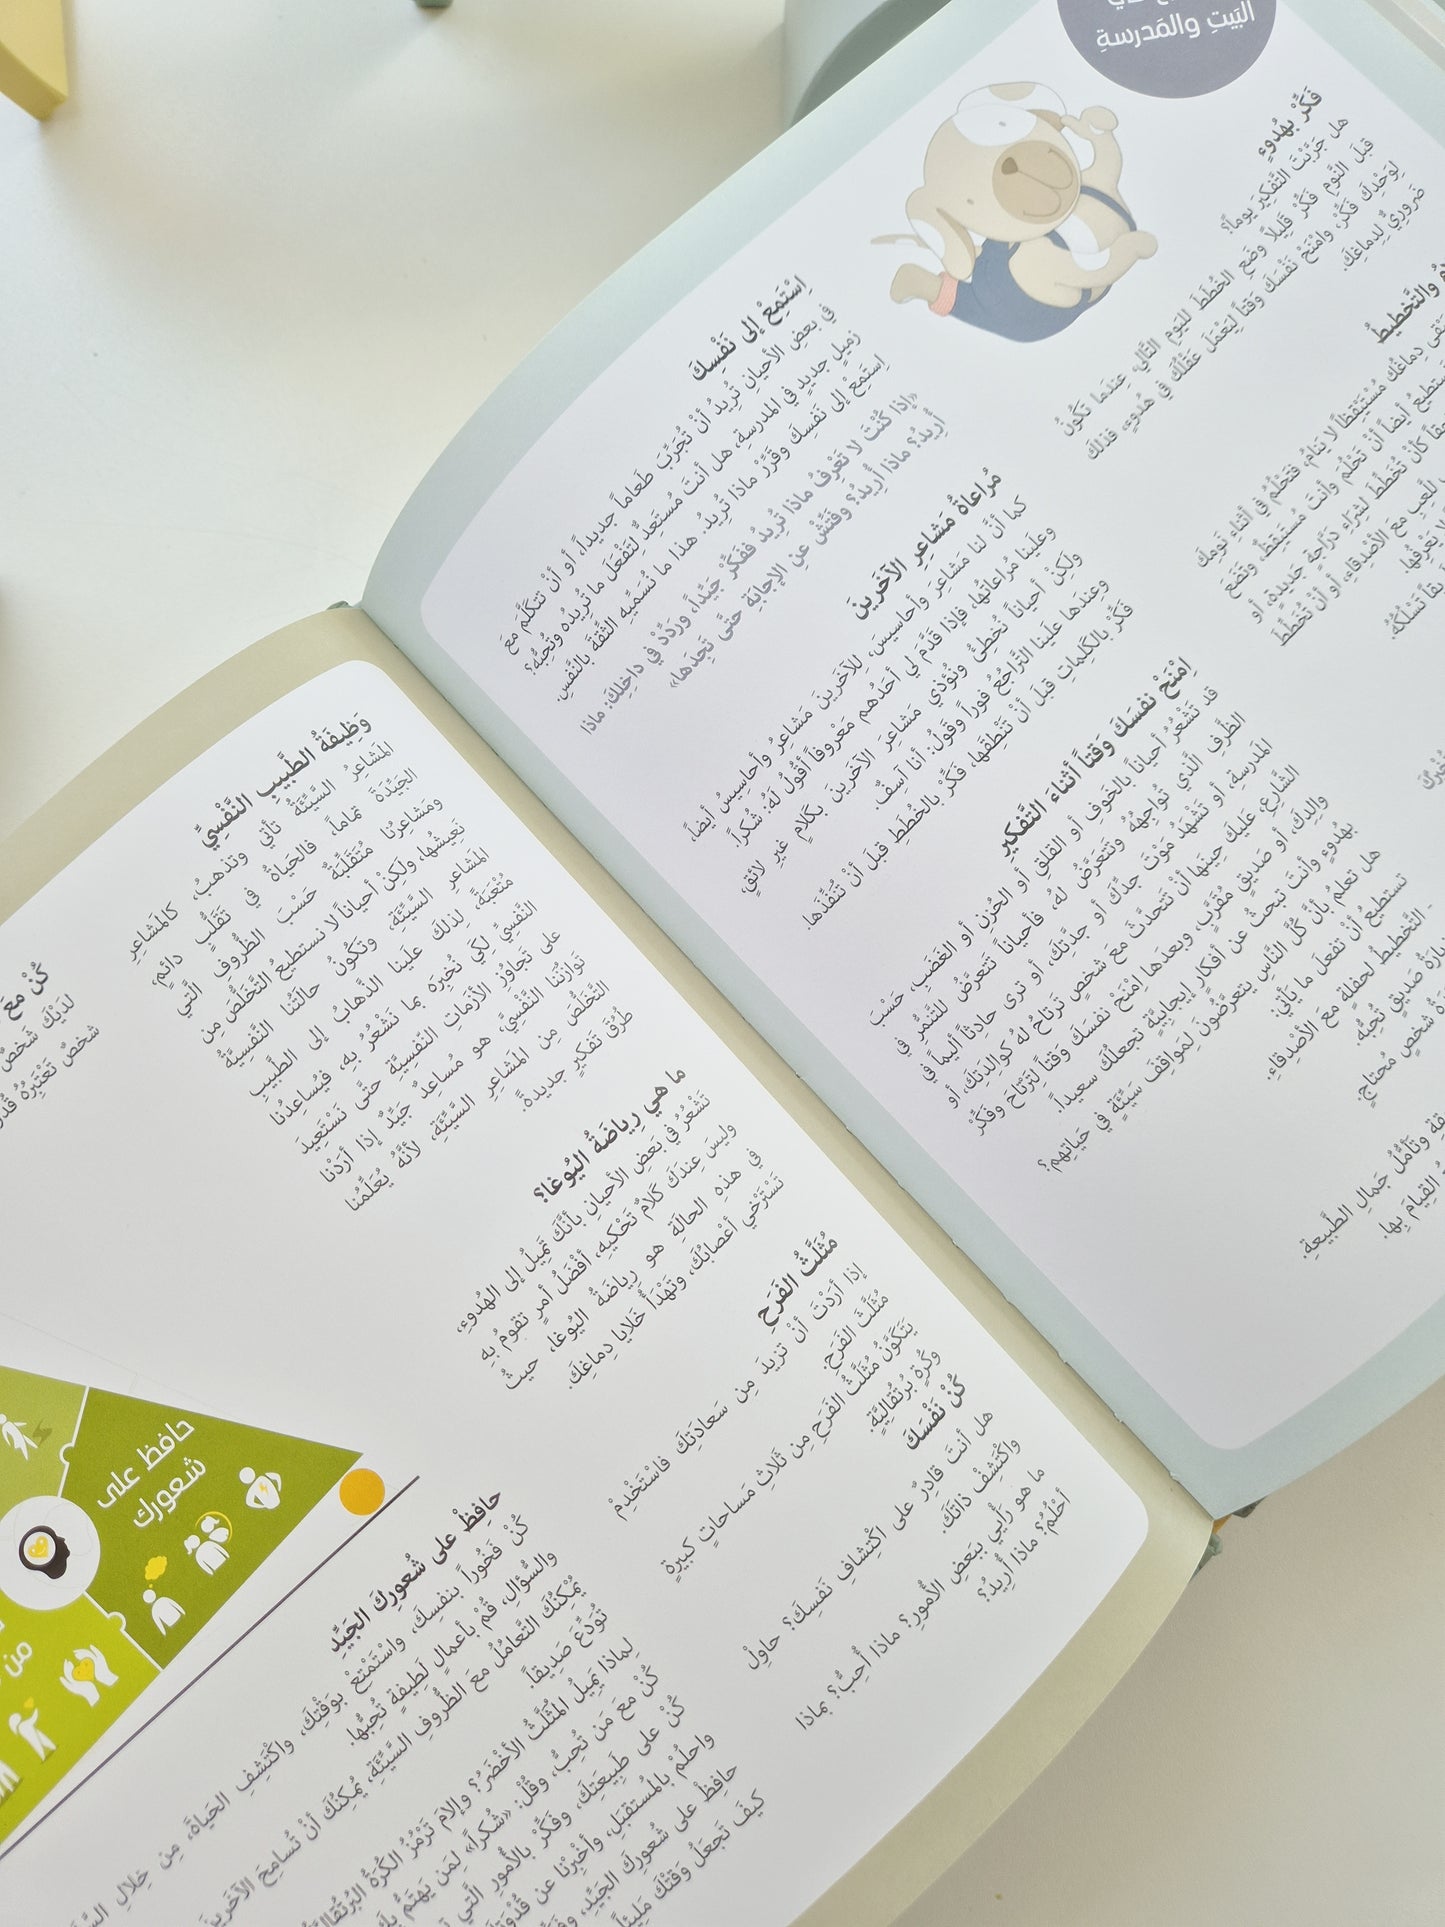 البَيتِ والمَدرسةِ
فَكِّرْ بِهُدوءٍ
هل جَرَّبْتَ التَّفكِيرَ يوماً؟
قبلَ النَّومِ فَكِّرْ قَلِيلاً وضَعِ الخُطَطَ لليَومِ التَّالي، عِندَما تَكُونُ
لِوَحْدِكَ فَكِّرْ، وامْنَحْ نَفْسَكَ وَقتاً لِيَعْمَلَ عَقْلُكَ في هُدوءٍ، فذلكَ
ضَروريٌّ لِدِماغِكَ.
والتَّخْطِيطُ
دِماغُكَ مُسْتَيْقِظاً لا يَنامُ، فتَحْلُمُ في أثناءِ نَومِكَ
تَستطيعُ أيضاً أنْ تَحْلُمَ وأنتَ مُستَيقِظٌ، وتَضَعَ
كأنْ تُخَطِّطَ لِشِراءِ دَرَّاجةٍ جديدةٍ، أو
للَّعِبِ معَ الأصْدِقاءِ، أو أنْ تُخَطِّطَ
تَسْلُكُهُ.
اِسْتَمِعْ إلى نَفْسِكَ
في بعضِ الأحيانِ تُرِيدُ أنْ تُجَرِّبَ طَعاماً جديداً، أو أنْ تتكلَّمَ معَ
زميلٍ جديدٍ في المدرسةِ، هل أنتَ مُستَعِدٌّ لِتَفْعَلَ ما تُرِيدُه وتُحِبُّه؟
اِستَمِعْ إلى نَفسِكَ وقَرِّرْ ماذا تُرِيدُ. هذا ما نُسَمِّيهِ الثِّقةَ بالنَّفسِ.
«إذا كُنْتَ لا تَعْرِفُ ماذا تُرِيدُ ففَكِّرْ جَيِّداً، ورَدِّدْ في داخِلِكَ: ماذا
أُرِيدُ؟ ماذا أُرِيدُ؟ وفَتِّشْ عنِ الإجابَةِ حتَّى تَجِدَها»
مُراعاةُ مَشاعِرِ الآخَرِينَ
كما أنَّ لنا مَشاعِرَ وأحاسيسَ، لِلآخَرِينَ مَشاعِرُ وأحاسِيسُ أيضاً،
وعلَينا مُراعاتُها، فإذا قَدَّمَ لي أحَدُهم مَعْروفاً أقُولُ لَهُ: شُكراً.
ولكِنْ أحياناً نُخطِئُ ونُؤذي مَشاعِرَ الآخَرينَ بكَلامٍ غيرِ لائقٍ،
وعِندَها علَينا التَّراجُعُ فوراً وقَولُ: أنا آسِفٌ.
فَكِّرْ بالكَلِماتِ قبلَ أنْ تَنْطِقَها، فَكِّرْ بالخُطَطِ قبلَ أنْ تُنَفِّذَها.
اِمْنَحْ نفسَكَ وَقتاً أثناءَ التَّفكيرِ
قد تَشْعُرُ أحياناً بالخَوفِ أو القلقِ أو الحُزنِ أو الغَضَبِ، حَسْبَ
الظَّرفِ الَّذي تُواجِهُهُ وتَتعَرَّضُ لهُ، فأحياناً تتعرَّضُ للتَّنمُّرِ في
المَدرسةِ، أو تَشْهَدُ مَوْتَ جدِّكَ أو جدَّتِكَ، أو ترى حادِثاً أليماً في
الشَّارِعِ، عليكَ حِينَها أنْ تتحدَّثَ معَ شخصٍ تَرتاحُ له كوالِدَتِكَ، أو
والِدِكَ، أو صَديقٍ مُقرَّبٍ، وبعدَها اِمْنَحْ نفسَكَ وَقتاً لِتَرْتاحَ وفَكِّرْ
بِهُدوءٍ وأنتَ تبحثُ عن أفكارٍ إيجابيَّةٍ تجعلُكَ سعيداً.
هل تعلمُ بأنَّ كُلَّ النَّاسِ يتعرَّضُونَ لِمَواقِفَ سَيِّئَةٍ في حَياتِهم؟
تستطيعُ أنْ تفعلَ ما يَأْتي:
- التَّخطيطُ لحفلةٍ معَ الأصدِقاءِ.
صَديقٍ تُحِبُّه.
شخصٍ مُحتاجٍ.
وتَأمُّلُ جَمالِ الطَّبيعةِ.
القِيامَ بِها.
وَظِيفَةُ الطَّبِيبِ النَّفْسِيِّ
المَشاعِرُ السَّيِّئَةُ تأتي وتذهبُ، كالمَشاعِرِ
الجَيِّدَةِ تماماً، فالحَياةُ في تَقَلُّبٍ دائمٍ،
ومشاعِرُنا مُتَقلِّبَةٌ حَسْبَ الظُّروفِ الَّتي
نَعِيشُها، ولكِنْ أحياناً لا نستطيعُ التَّخَلُّصَ مِن
المَشاعِرِ السَّيِّئَةِ، وتَكُونُ حالَتُنا النَّفسِيَّةُ
مُتْعَبَةً، لِذلكَ علَينا الذَّهابُ إلى الطَّبيبِ
النَّفْسِيِّ لِكَي نُخبِرَه بما نَشْعُرُ بهِ، فيُساعِدُنا
على تَجاوُزِ الأزَماتِ النَّفْسِيَّةِ حتَّى نَسْتَعِيدَ
تَوازُنَنا النَّفْسِيَّ، هو مُساعِدٌ جَيِّدٌ إذا أرَدْنا
التَّخلُّصَ مِن المَشاعِرِ السَّيِّئَةِ، لأنَّهُ يُعَلِّمُنا
طُرُقَ تَفكيرٍ جديدةً.
ما هي رِياضَةُ اليُوغا؟
تَشْعُرُ في بَعضِ الأحيانِ بأنَّكَ تَمِيلُ إلى الهُدوءِ،
وليسَ عِندَكَ كَلامٌ تَحْكيه، أفْضَلُ أمرٍ تقومُ بِهِ
في هذهِ الحالَةِ هو رِياضَةُ اليُوغا، حيثُ
تَسْتَرْخي أعْصابُكَ، وتَهْدَأُ خَلايا دِماغِكَ.
مُثَلَّثُ الفَرَحِ
إذا أرَدْتَ أنْ تزيدَ مِن سَعادَتِكَ فاسْتَخْدِمْ
مُثَلَّثَ الفَرَحِ.
يَتَكَوَّنُ مُثَلَّثُ الفَرَحِ مِن ثَلاثِ مَساحاتٍ كبيرةٍ
وكُرةٍ بُرتُقاليَّةٍ.
كُنْ نَفْسَكَ
هل أنتَ قادِرٌ على اكْتِشافِ نَفسِكَ؟ حاوِلْ
واكْتَشِفْ ذاتَكَ.
ما هو رَأْيي ببَعضِ الأُمورِ؟ ماذا أُحِبُّ؟ بماذا
أحْلُمُ؟ ماذا أُريدُ؟
كُنْ مَعَ
لدَيْكَ شَخصٌ
شخصٌ تَعْتَبِرُهُ
حافظ على
شعورك
من
حافِظْ على شُعورِكَ الجَيِّدِ
كُنْ فَخُوراً بنفسِكَ، واسْتَمْتِعْ بوَقْتِكَ، واكْتَشِفِ الحَياةَ، مِن خِلالِ
والسُّؤالِ، قُمْ بأعمالٍ لَطيفةٍ تُحِبُّها.
يُمْكِنُكَ التَّعامُلُ معَ الظُّروفِ السَّيِّئَةِ، يُمكِنُكَ أنْ تُسامِحَ الآخَرينَ
تُودِّعَ صَدِيقاً.
لِماذا يَمِيلُ المُثلَّثُ الأخْضَرُ؟ وإلامَ تَرْمُزُ الكُرَةُ البُرتُقاليَّةُ
كُنْ معَ مَن تُحِبُّ، وقُلْ: «شُكراً» لِمَن يَهتَمُّ بِكَ
كُنْ على طَبِيعَتِكَ، وفَكِّرْ بالأُمورِ الَّتي
واحلُمْ بالمُستقبَلِ، وأخْبِرْنا عن
حافِظْ على شُعورِكَ الجَيِّدِ،
كيفَ تَجعَلُ وَقتَكَ مَلِيئاً